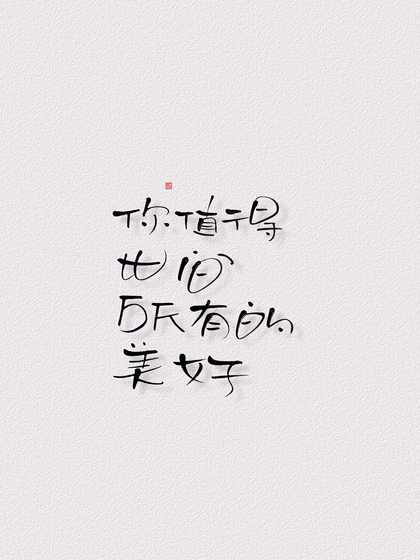 你值得
世间
所有的
美好